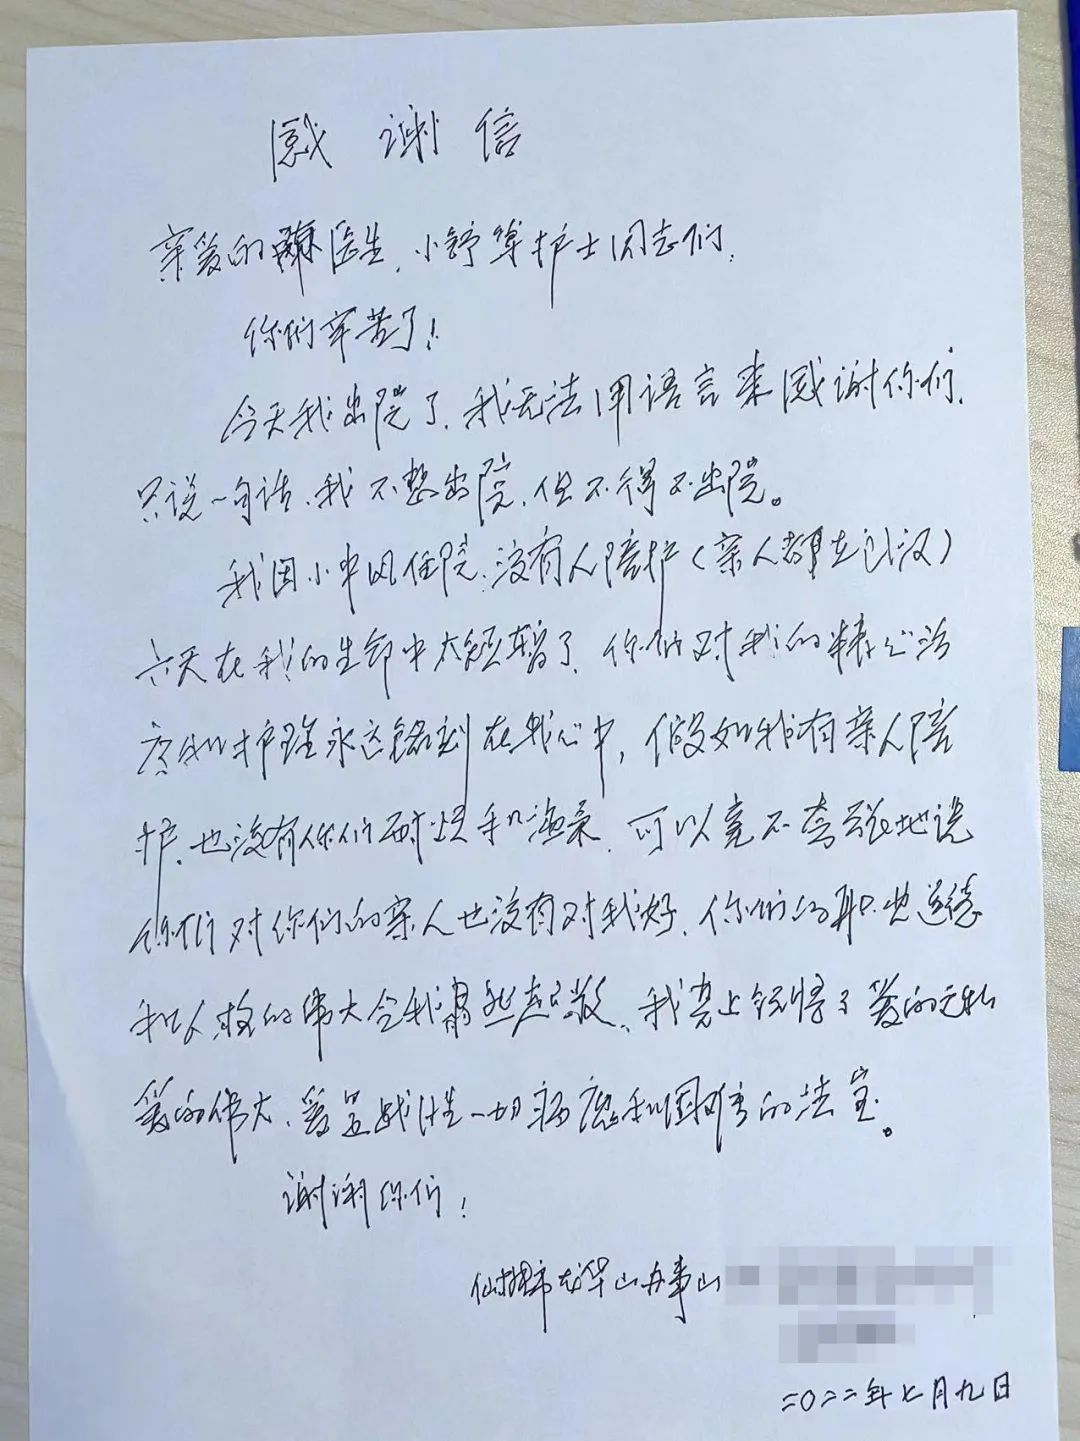 感谢信
亲爱的陈医生、小舒等护士同志们:
你们辛苦了!
今天我出院了、我无法用语言来感谢你们、
只说一句话、我不想出院、但不得不出院。
我因小中风住院、没有人陪护(亲人都在武汉)
六天在我的生命中太短暂了、你们对我的精心治
疗和护理永远铭刻在我心中,假如我有亲人陪
护、也没有你们耐烦和温柔、可以毫不夸张地说
你们对你们的亲人也没有对我好、你们的职业道德
和人格的伟大令我肃然起敬、我马上领悟了爱的无私
爱的伟大、爱是战胜一切病魔和困难的法宝。
谢谢你们!
仙桃市龙华山办事
二〇二二年七月九日